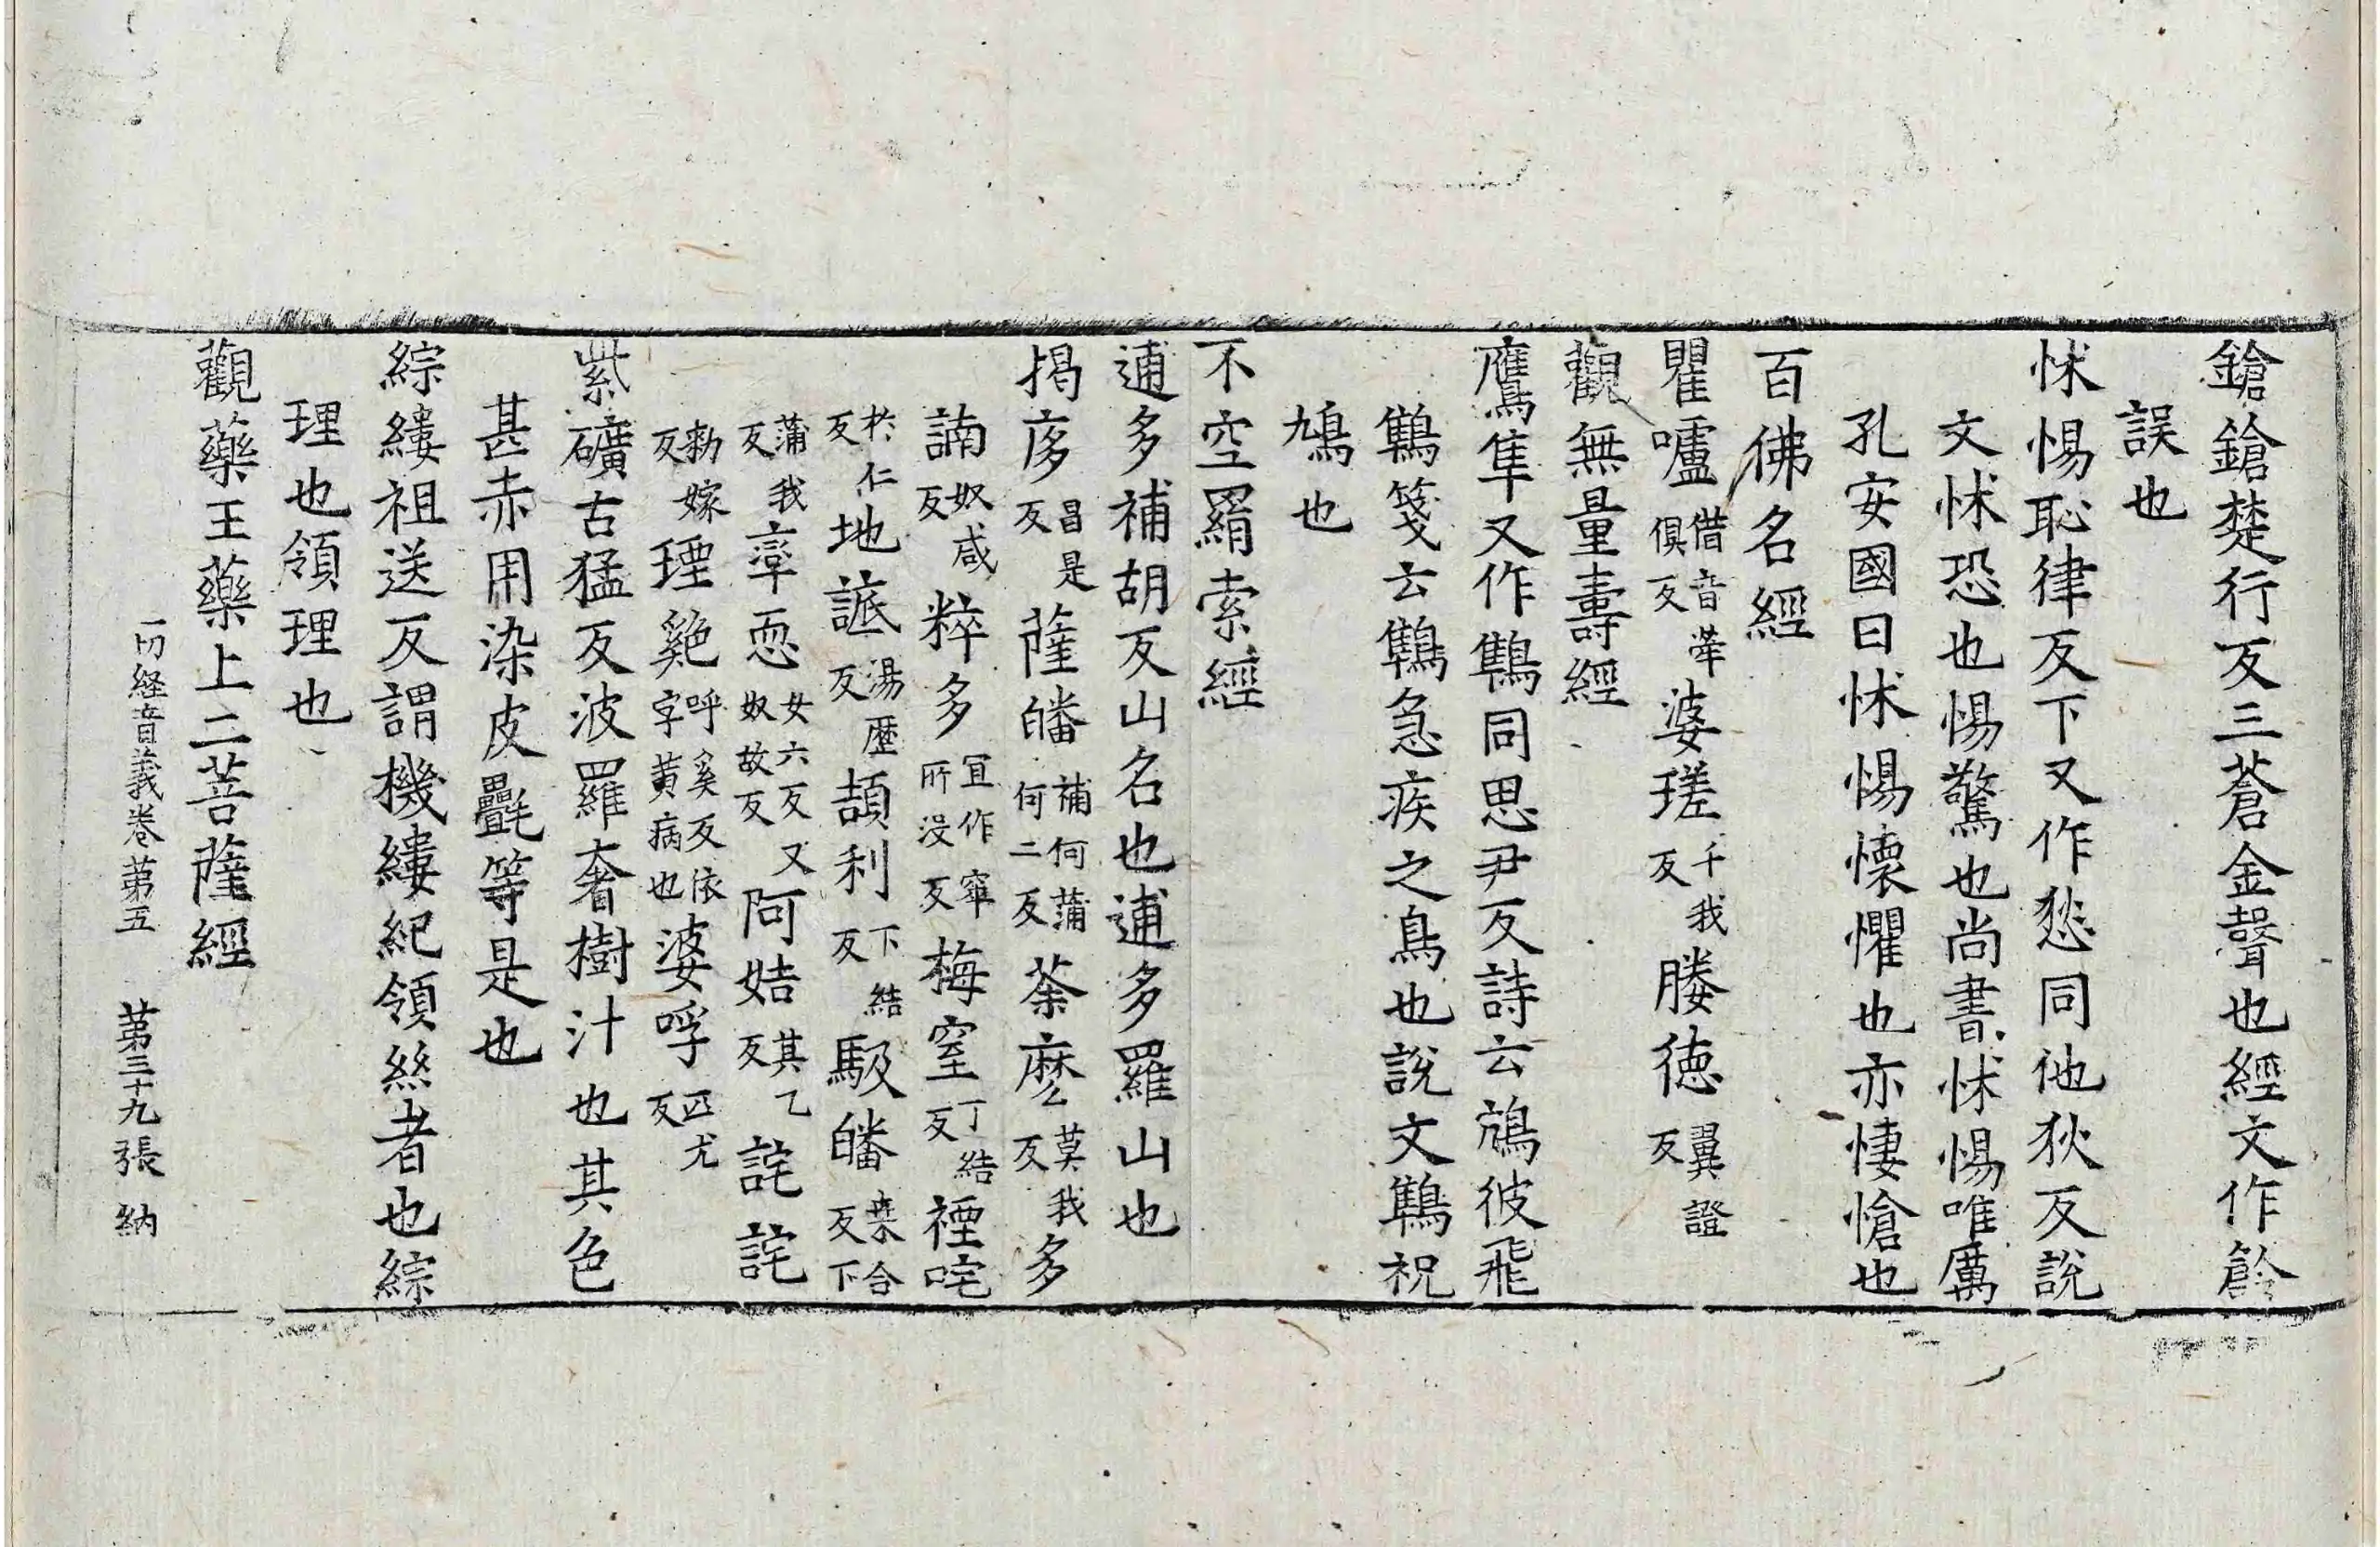 鎗鎗楚行反三蒼金聲也經文作䤼
誤也
怵惕恥律反下又作愁同他狄反說
文怵恐也惕驚也尚書怵惕唯厲
孔安國曰怵惕懷懼也亦悽愴也
百佛名經
瞿嚧借音犖俱反婆瑳千我反媵徳翼證反
觀無量壽經
鷹隼又作鵻同思尹反詩云鴥彼飛
鵻箋云鵻急疾之鳥也說文鵻祝
鳩也
不空羂索經
逋多補胡反山名也逋多羅山也
揭㢋昌是反薩皤補何蒲何二反荼麽莫我反多
諵奴咸反粹多冝作窣所没反梅窒丁結反禋咤
扵仁反地𧩙湯歷反頡利下結反馺皤桒合反下
蒲我反恧女六反又奴故反阿姞其乙反詫詫
勑嫁反㻑㜎呼奚反依字黄病也婆呼匹尤反
紫礦古猛反波羅奢樹汁也其色
甚赤用染皮㲲等是也
綜縷祖送反謂機縷紀領絲者也綜
理也領理也
觀藥王藥上二菩薩經
一切経音義卷苐五　苐三十九張　納